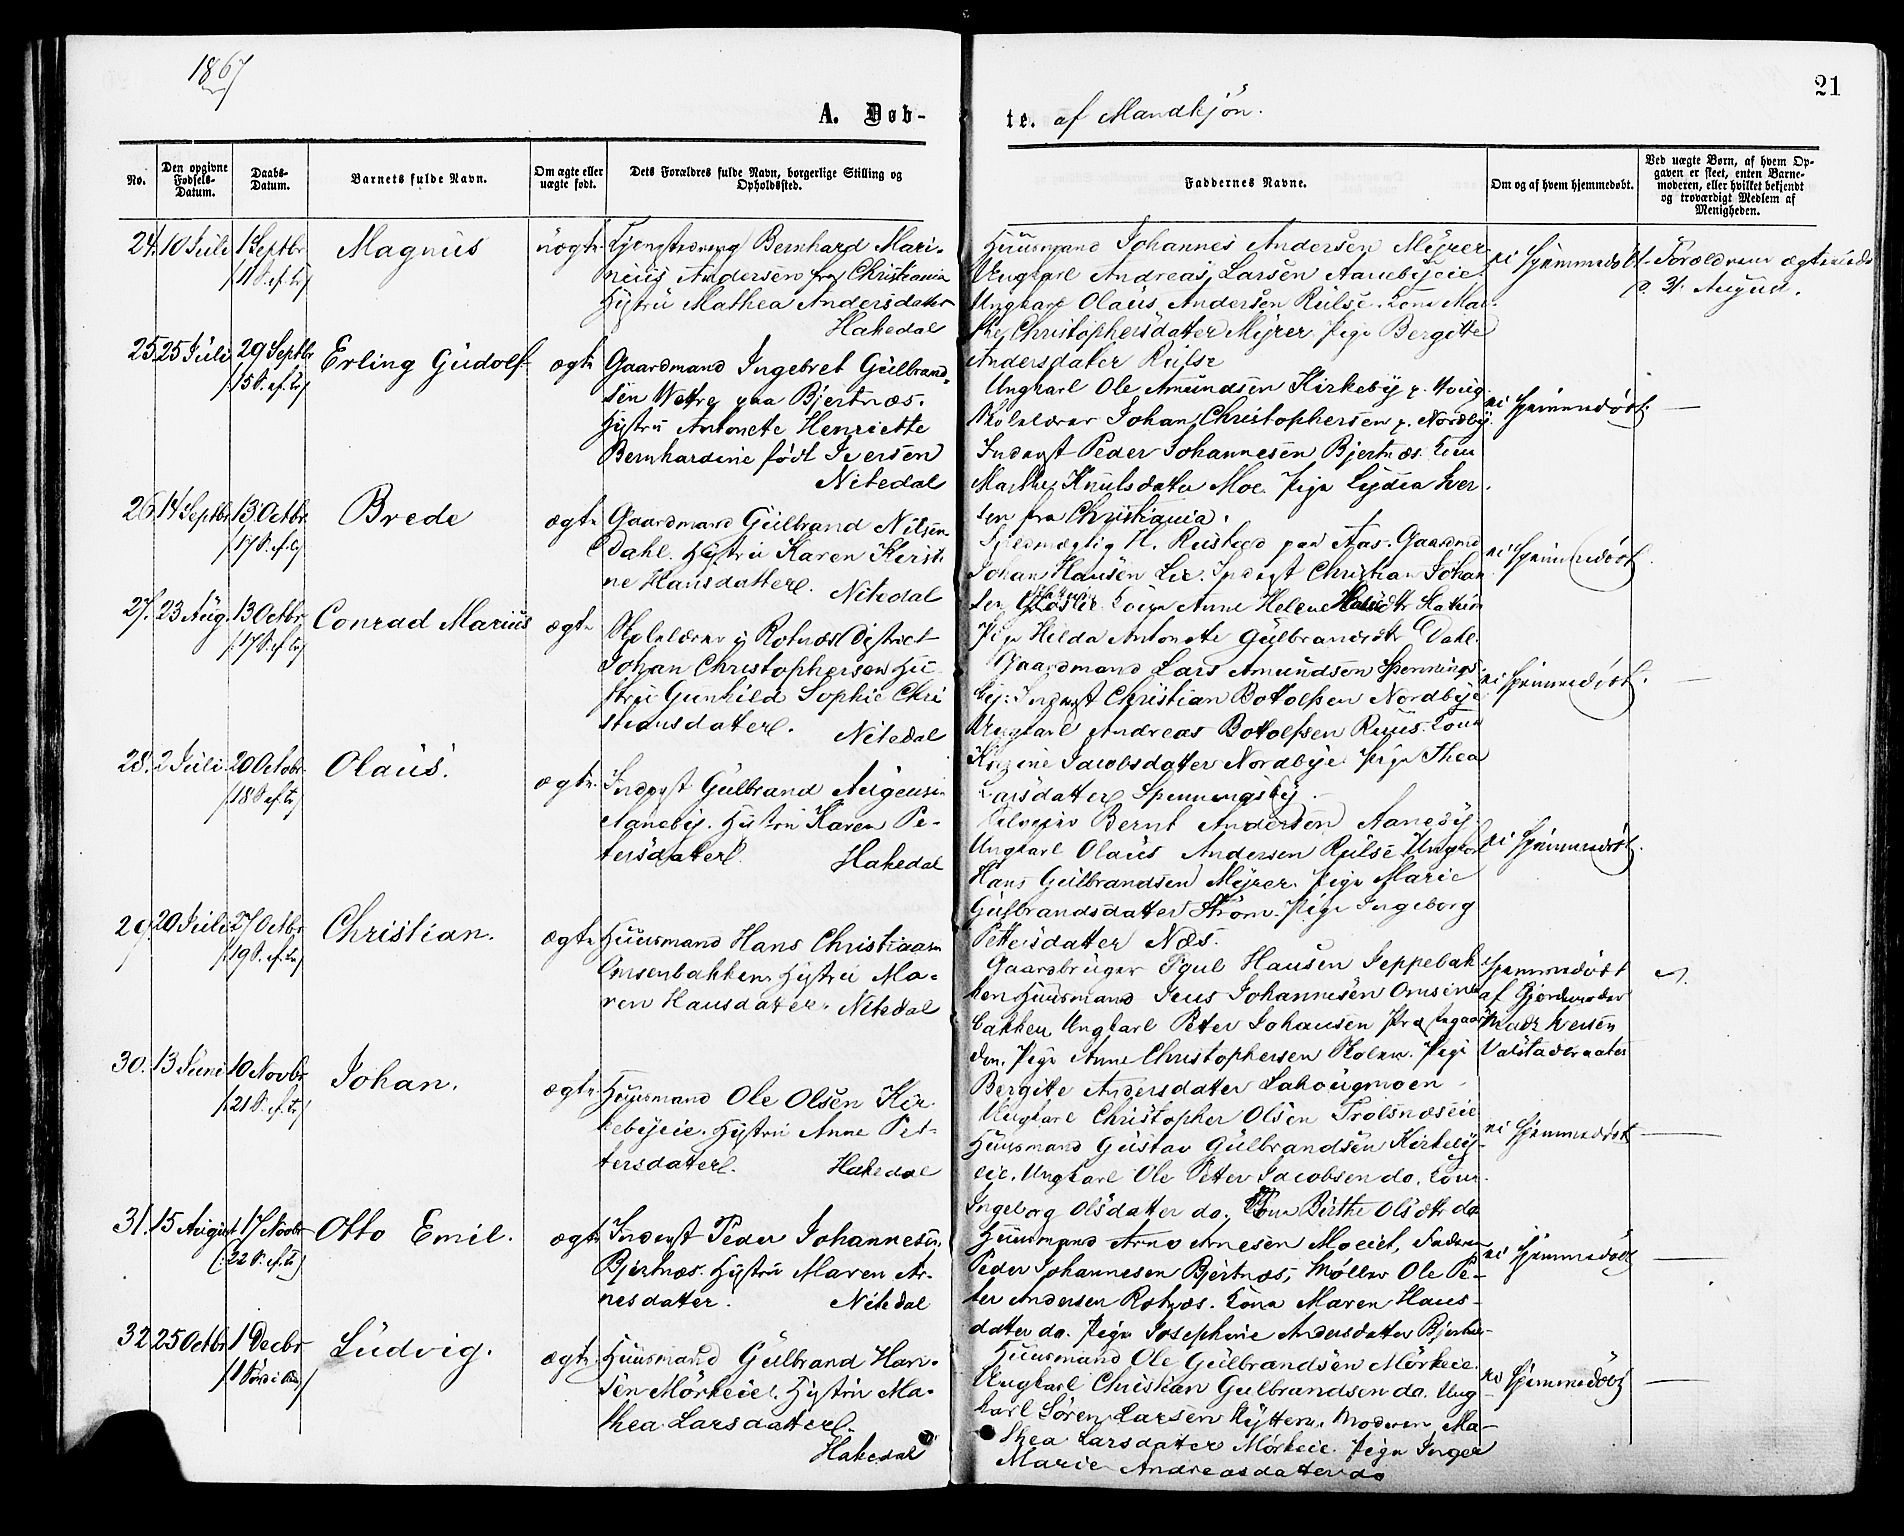 1867
21
A. Døb-
te. af Mandkjön.
No.
Den opgivne
Fødsels-
Datum.
Daabs-
Datum.
Barnets fulde Navn.
Om ægte eller
uægte født.
Dets Forældres fulde Navn, borgerlige Stilling og
Opholdssted.
Faddernes Navne.
Om og af hvem hjemmedøbt.
Ved uægte Børn, af hvem Op-
gaven er skeet, enten Barne-
moderen, eller hvilket bekjendt
og troværdigt Medlem af
Menigheden.
24. 10 Juli 1 Septbr Magnus uægte Bernhard Mari-
nius Andersen fra Christiania
Hustru Mathea Andersdatter
Hakedal
Huusmand Johannes Andersen Myrer
Ungkarl Andreas Larsen Aanebyeie
Ungkarl Olaus Andersen Rulse. Kone Mar-
the Christophersdatter Myrer. Pige Bergitte
Andersdatter Rulse
ei hjemmedøbt
Forældrene
31 August.
25. 25 Juli 29 Septbr Erling Gudolf ægte Gaardmand Ingebret Gulbrand-
/15 S. ef. Tr/
sen Wetre paa Bjertnæs.
Hustru Antonete Henriette
Bernhardine født Iversen
Nitedal
Ungkarl Ole Amundsen Kirkeby
Skolelærer Johan Christophersen p. Nordby
Inderst Peder Johannesen Bjertnæs. Kone
Marthe Knutsdatter Moe. Pige Lydia Iver-
sen fra Christiania.
ei hjemmedøbt.
26. 14 Septbr 13 Octbr Brede ægte Gaardmand Gulbrand Nilsen
/17 S. ef. Tr/
Dahl. Hustru Karen Kirsti-
ne Hansdatter. Nitedal
H. Rustad paa Aas. Gaardmd
Johan Hansen Lie. Inderst Christian Johan-
sen Anne Helene
Pige Hilda Antonette Gulbrandsdtr Dahl.
ei hjemmedøbt
27. 23 Aug. 13 Octbr Conrad Marius ægte Skolelærer i Rotnæs District
/17 S. ef. Tr/
Johan Christophersen Hu-
stru Gunhild Sophie Chri-
stiansdatter.
Nitedal
Gaardmand Lars Amundsen Spennings-
by. Inderst Christian Botolfsen Nordbye
Ungkarl Andreas Botolfsen Ruus. Kone
Jacobsdatter Nordbye Pige Thea
Larsdatter Spenningsby
ei hjemmedøbt.
28. 2 Juli 20 Octobr Olaus. ægte Inderst Gulbrand
/18 S. ef. Tr/
Aaneby. Hustru Karen Pe-
tersdatter. Hakedal
Bernt Andersen Aaneby.
Ungkarl Olaus Andersen Rulse Ungkarl
Hans Gulbrandsen Myrer. Pige Marie
Gulbrandsdatter Strøm. Pige Ingeborg
Pettersdatter Næs.
ei hjemmedøbt.
29. 20 Juli 27 Octbr Christian. ægte Huusmand Hans Christiansen
/19 S. ef. Tr/
Ornsenbakken Hustru Ma-
ren Hansdatter. Nitedal
Gaardbruger Poul Hansen Jeppebak-
ken Huusmand Jens Johannesen Ornsen-
bakken Ungkarl Peter Johansen Præstegaar-
den. Pige Anne Christophersen Pige
Bergitte Andersdatter Lahougmoen
Hjemmedøbt
af Gjordmoder
30. 13 Juni 10 Novbr Johan. ægte Huusmand Ole Olsen Kir-
/21 S. ef. Tr/
kebyeie. Hustru Anne Pet-
tersdatter. Hakedal
Ungkarl Christopher Olsen Trolsnæseie
Huusmand Gustav Gulbrandsen Kirkeby-
eie. Ungkarl Ole Peter Jacobsen do. Kone
Ingeborg Olsdatter do. Birthe Olsdtr do
ei hjemmedøbt
31. 15 August 17 Novbr Otto Emil. ægte Inderst Peder Johannesen
(22 S. ef. Tr)
Bjertnæs. Hustru Maren Ar-
nesdatter. Nitedal
Huusmand Arne Arnesen Moeiet, Faderen
Peder Johannesen Bjertnæs, Møller Ole Pe-
ter Andersen Rotnæs. Kone Maren Hans-
datter do. Pige Josephine Andersdatter
ei hjemmedøbt
32. 25 Octbr 1 Decbr Ludvig. ægte Huusmand Gulbrand Han-
sen Mörkeie. Hustru Ma-
thea Larsdatter.
Hakedal
Huusmand Ole Gulbrandsen Mörkeie.
Ungkarl Christian Gulbrandsen do. Ung-
karl Sören Larsen Moderen Ma-
thea Larsdatter Mörkeie. Pige Inger
Marie Andreasdatter do
ei hjemmedøbt